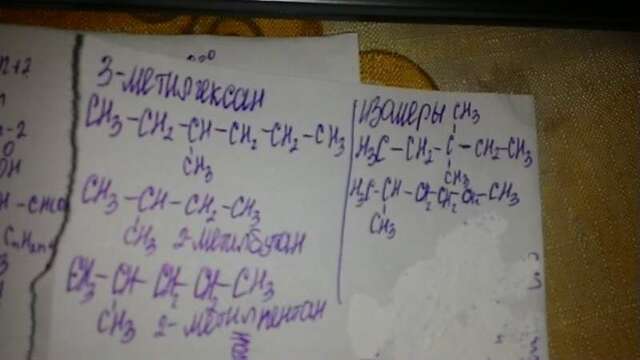 3-метилгексан
CH₃-CH₂-CH-CH₂-CH₂-CH₃
CH₃
CH₃-CH-CH₂-CH₃
CH₃ 2-метилбутан
CH₃-CH-CH₂-CH₂-CH₃
CH₃ 2-метилпентан
изомеры CH₃
H₃C-CH₂-C-CH₂-CH₃
CH₃
H₃C-CH-CH₂-CH₂-CH₂-CH₃
CH₃